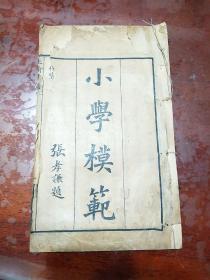 小學模範
張孝謙題